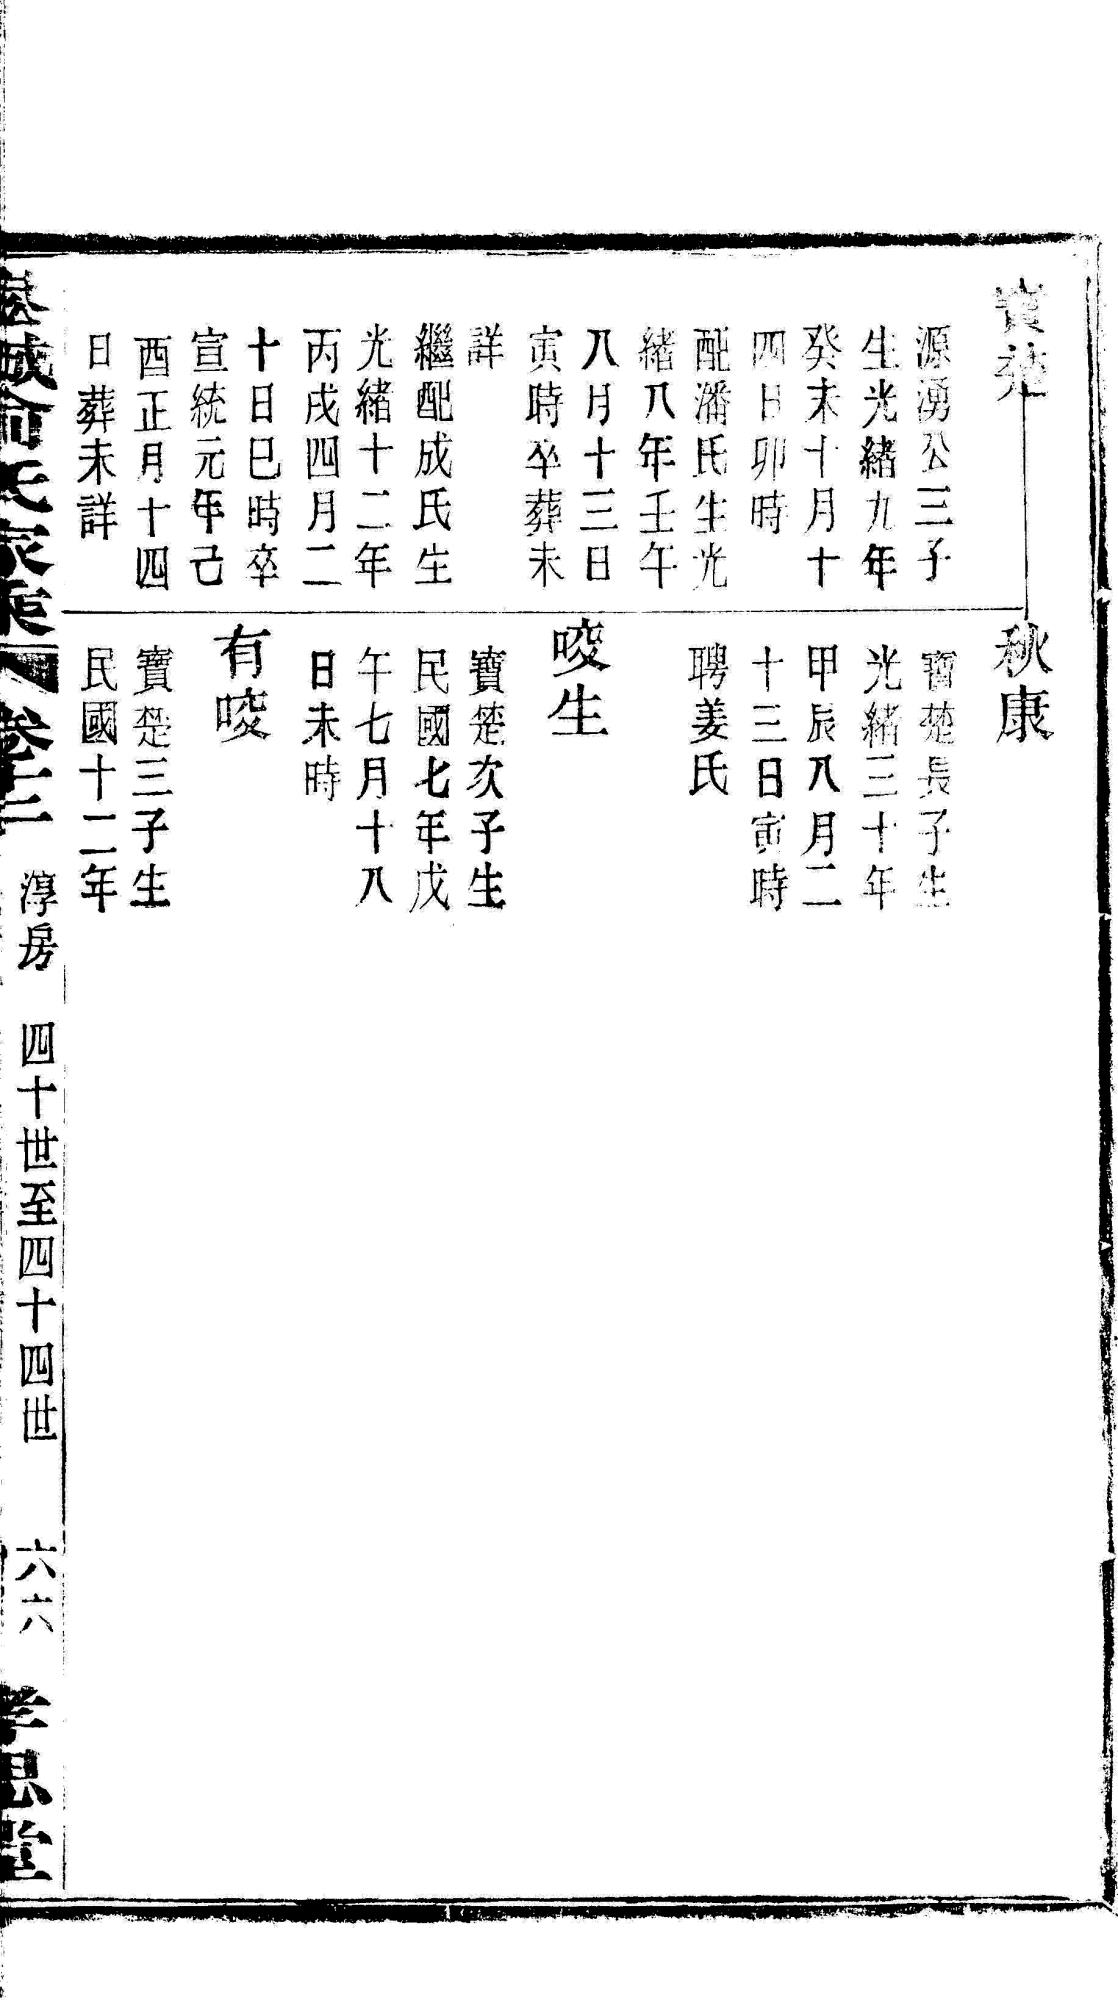 寶楚
源湧公三子
生光緒九年
癸未十月十
四日卯時
配潘氏生光
緒八年壬午
八月十三日
寅時卒葬未
詳
繼配成氏生
光緒十二年
丙戌四月二
十日巳時卒
宣統元年己
酉正月十四
日葬未詳
秋康
寶楚長子生
光緒三十年
甲辰八月二
十三日寅時
聘姜氏
唆生
寶楚次子生
民國七年戊
午七月十八
日未時
有唆
寶楚三子生
民國十二年
俞氏家乘 卷十二 淳房 四十世至四十四世 六六 孝思堂